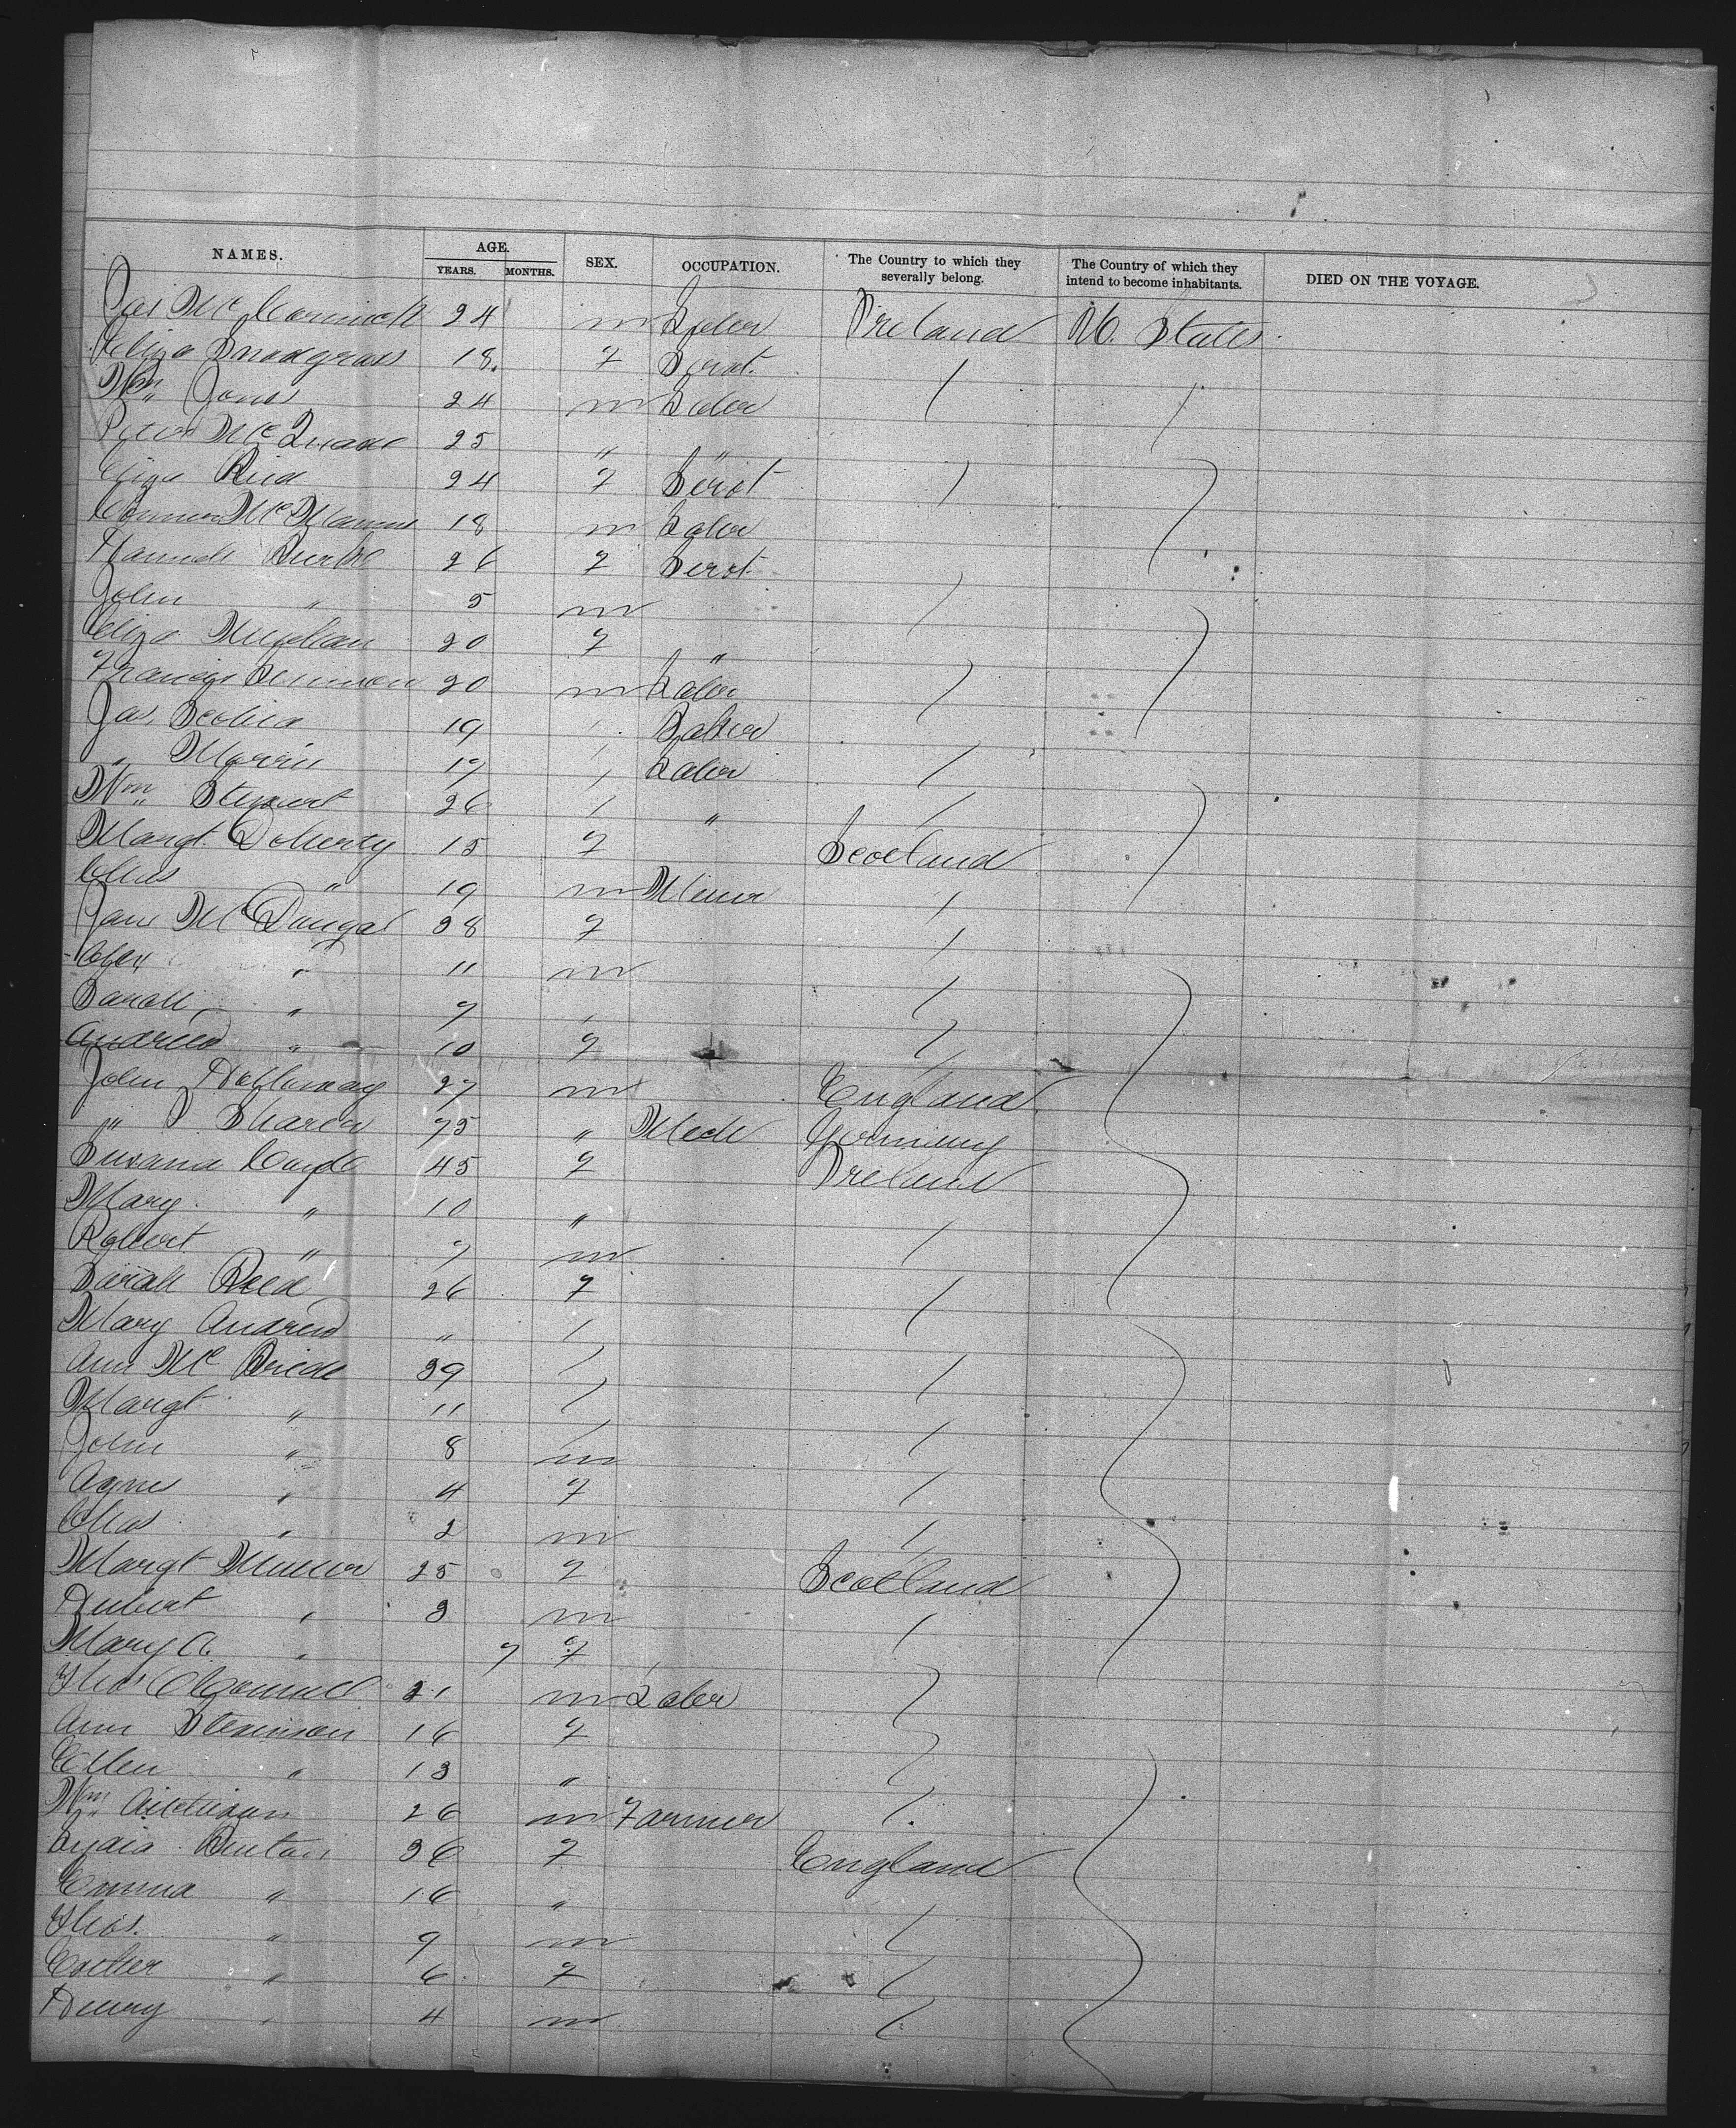 NAMES. AGE. SEX. OCCUPATION. The Country to which they severally belong. The Country of which they intend to become inhabitants. DIED ON THE VOYAGE.
YEARS. MONTHS.
Jas McCormick 24 m Labr Ireland U. States
Eliza Snodgrass 18. f Servt.
Wm Jones 24 m Labr
Peter McQuade 25 " "
Eliza Reid 24 f Servt
McManus 18 m Labr
Hannah Burke 26 f Servt
John " 5 m
Eliza Meghan 20 f "
Francis 20 m Labr
Jas. 19 Baker
" Morris 19 Labr
Wm Stewart 26 "
Margt. Doherty 15 f Scotland
Chas " 19 m Miner
Jane McDougal 38 f
Alex " 11 m
Sarah " 9
Andrew " 10 f
John Holloway 27 m England
" 75 " Mech Germany
Susana 45 f Ireland
Mary " 10 "
Robert " 9 m
Sarah Reed 26 f
Mary Andrew "
Ann McBride 39
Margt " 11
John " 8 m
Agnes " 4 f
Chas " 2 m
Margt 25 f Scotland
Hubert " 3 m
Mary A. " 9 f
Thos O'Connell 21 m Labr
Ann Stevenson 16 f
Ellen " 13 "
Wm 26 m Farmer
Lydia Benton 36 f England
Emma " 16 "
Thos. " 9 m
Esther " 6 f
Henry " 4 m